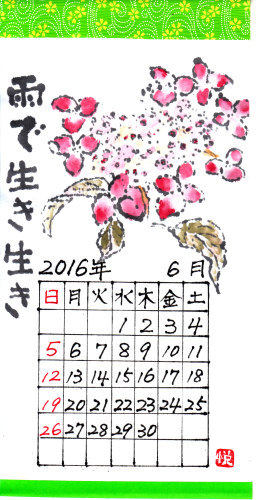 雨で生き生き
2016年 6月
日 月 火 水 木 金 土
1 2 3 4
5 6 7 8 9 10 11
12 13 14 15 16 17 18
19 20 21 22 23 24 25
26 27 28 29 30
悦